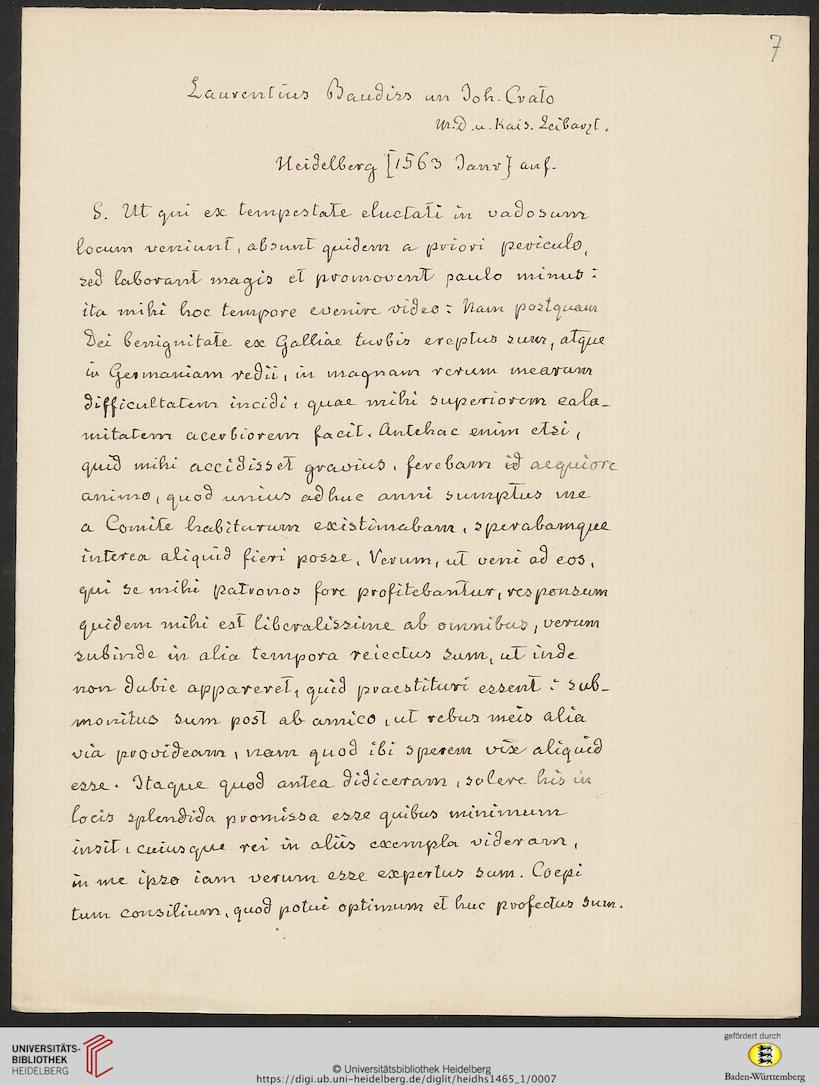 7
Laurentius Baudiss an Joh. Crato
M.D. u. Kais. Leibarzt.
Heidelberg [1563 Janr] anf.
S. Ut qui ex tempestate eluctati in vadosum
locum veniunt, absunt quidem a priori periculo,
sed laborant magis et promovent paulo minus:
ita mihi hoc tempore evenire video: Nam postquam
Dei benignitate ex Galliae turbis ereptus sum, atque
in Germaniam redii, in magnam rerum mearum
difficultatem incidi, quae mihi superiorem cala-
mitatem acerbiorem facit. Antehac enim etsi,
quid mihi accidisset gravius, ferebam id aequiore
animo, quod unius adhuc anni sumptus me
a Comite habiturum existimabam, sperabamque
interea aliquid fieri posse. Verum, ut veni ad eos,
qui se mihi patronos fore profitebantur, responsum
quidem mihi est liberalissime ab omnibus, verum
subinde in alia tempora reiectus sum, ut inde
non dubie appareret, quid praestituri essent: sub-
monitus sum post ab amico, ut rebus meis alia
via provideam, nam quod ibi sperem vix aliquid
esse. Itaque quod antea didiceram, solere his in
locis splendida promissa esse quibus minimum
insit, cuiusque rei in aliis exempla videram,
in me ipso iam verum esse expertus sum. Coepi
tum consilium, quod potui optimum et huc profectus sum.
UNIVERSITÄTS-
BIBLIOTHEK
HEIDELBERG
© Universitätsbibliothek Heidelberg
https://digi.ub.uni-heidelberg.de/diglit/heidhs1465_1/0007
gefördert durch
Baden-Württemberg